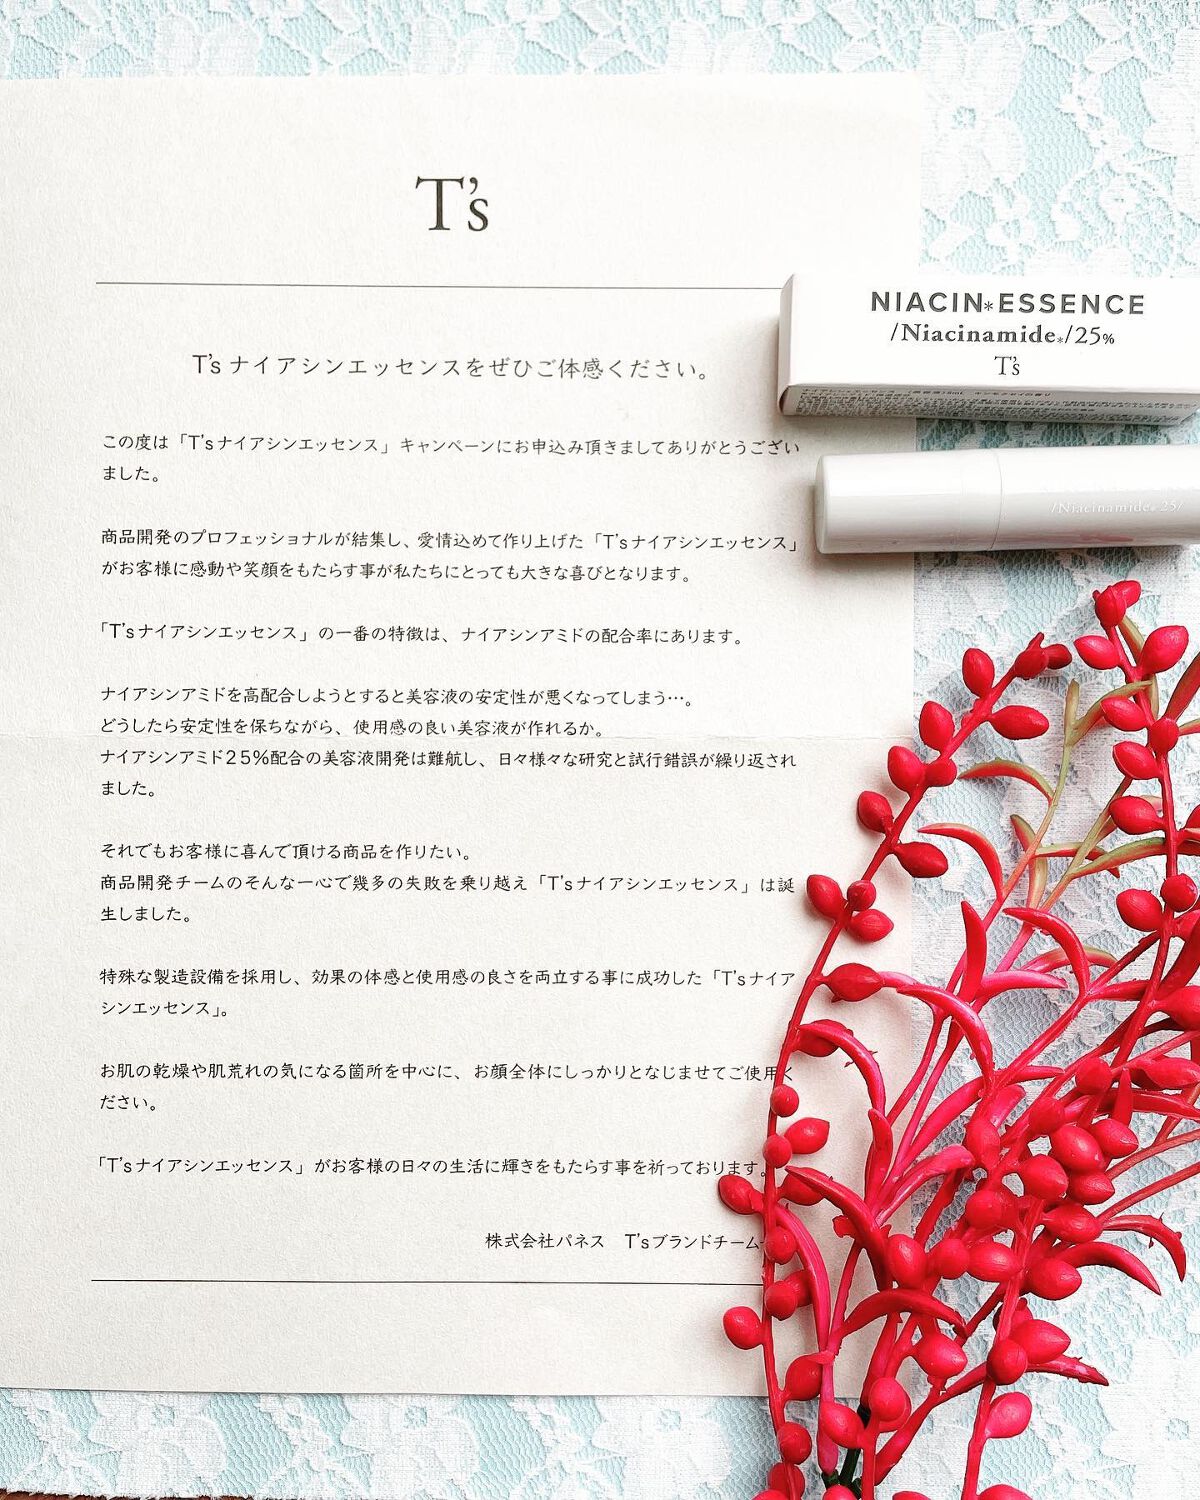 T's
T's ナイアシンエッセンスをぜひご体感ください。
この度は「T's ナイアシンエッセンス」キャンペーンにお申込み頂きましてありがとうござい
ました。
商品開発のプロフェッショナルが結集し、愛情込めて作り上げた「T's ナイアシンエッセンス」
がお客様に感動や笑顔をもたらす事が私たちにとっても大きな喜びとなります。
「T's ナイアシンエッセンス」の一番の特徴は、ナイアシンアミドの配合率にあります。
ナイアシンアミドを高配合しようとすると美容液の安定性が悪くなってしまう…。
どうしたら安定性を保ちながら、使用感の良い美容液が作れるか。
ナイアシンアミド25%配合の美容液開発は難航し、日々様々な研究と試行錯誤が繰り返され
ました。
それでもお客様に喜んで頂ける商品を作りたい。
商品開発チームのそんな一心で幾多の失敗を乗り越え「T's ナイアシンエッセンス」は誕
生しました。
特殊な製造設備を採用し、効果の体感と使用感の良さを両立する事に成功した「T's ナイア
シンエッセンス」。
お肌の乾燥や肌荒れの気になる箇所を中心に、お顔全体にしっかりとなじませてご使用く
ださい。
「T's ナイアシンエッセンス」がお客様の日々の生活に輝きをもたらす事を祈っております。
株式会社パネス　T's ブランドチーム
NIACIN*ESSENCE
/Niacinamide*/25%
T's
/Niacinamide* 25/